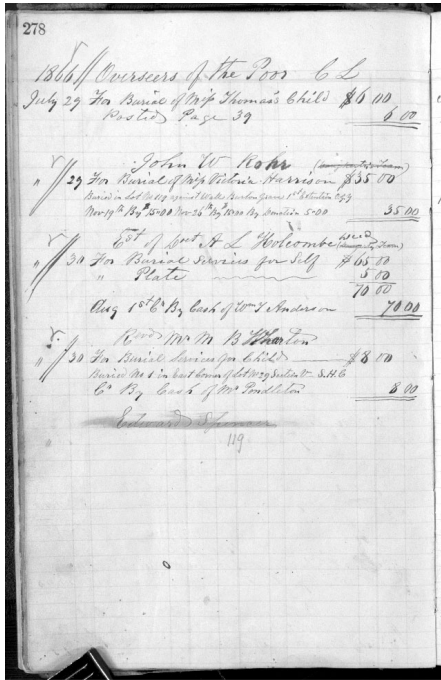 278
1866 // Overseers of the Poor C L
July 29 For Burial of Miss Thomas's Child $6 00
Posted Page 39 6 00
John W Rohr
" 29 For Burial of Miss Victoria Harrison $35.00
Buried in Lot No 119 against Walk Burton Graves 1st
Nov 19th By $15.00 Nov 26th By 15.00 By Donation 5.00 35 00
Est of Capt A L Holcombe
" 30 For Burial Services for Self $65 00
" Plate 5 00
70 00
Aug 1st Cr By Cash of Wm T Anderson 70 00
Revd Mr M B Wharton
" 30 For Burial Services for Child $8 00
Buried No 1 in East Corner of Lot No 29 Section S.H.C
Cr By Cash of Mr Pendleton 8 00
Edward Spencer
119